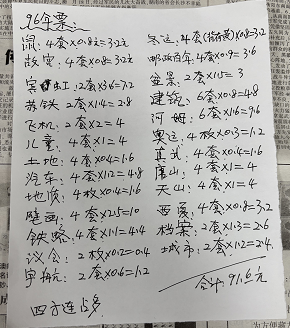 96年票:
鼠: 4套×0.8元=3.2元
故宫: 4套×0.8=3.2元
宾虹: 2套×3.6=7.2
苏铁: 2套×1.4=2.8
飞机: 2套×2=4
儿童: 4套×1=4
土地: 4套×0.4=1.6
汽车: 4套×1.2=4.8
地震: 4枚×0.4=1.6
壁画: 4套×2.5=10
铁路: 4套×1.1=4.4
议会: 2枚×0.2=0.4
宇航: 2套×0.6=1.2
冬运: 4套×0.8=3.2
邮政百年: 4套×0.9=3.6
2套×1.5=3
建筑: 6套×0.8=4.8
河姆: 6套×1.6=9.6
奥运: 4枚×0.3=1.2
真武: 4套×0.4=1.6
唐山: 4套×1=4
天山: 4套×1=4
西夏: 4套×0.8=3.2
档案: 2套×1.3=2.6
城市: 2套×1.2=2.4
合计: 91.6元
四方连